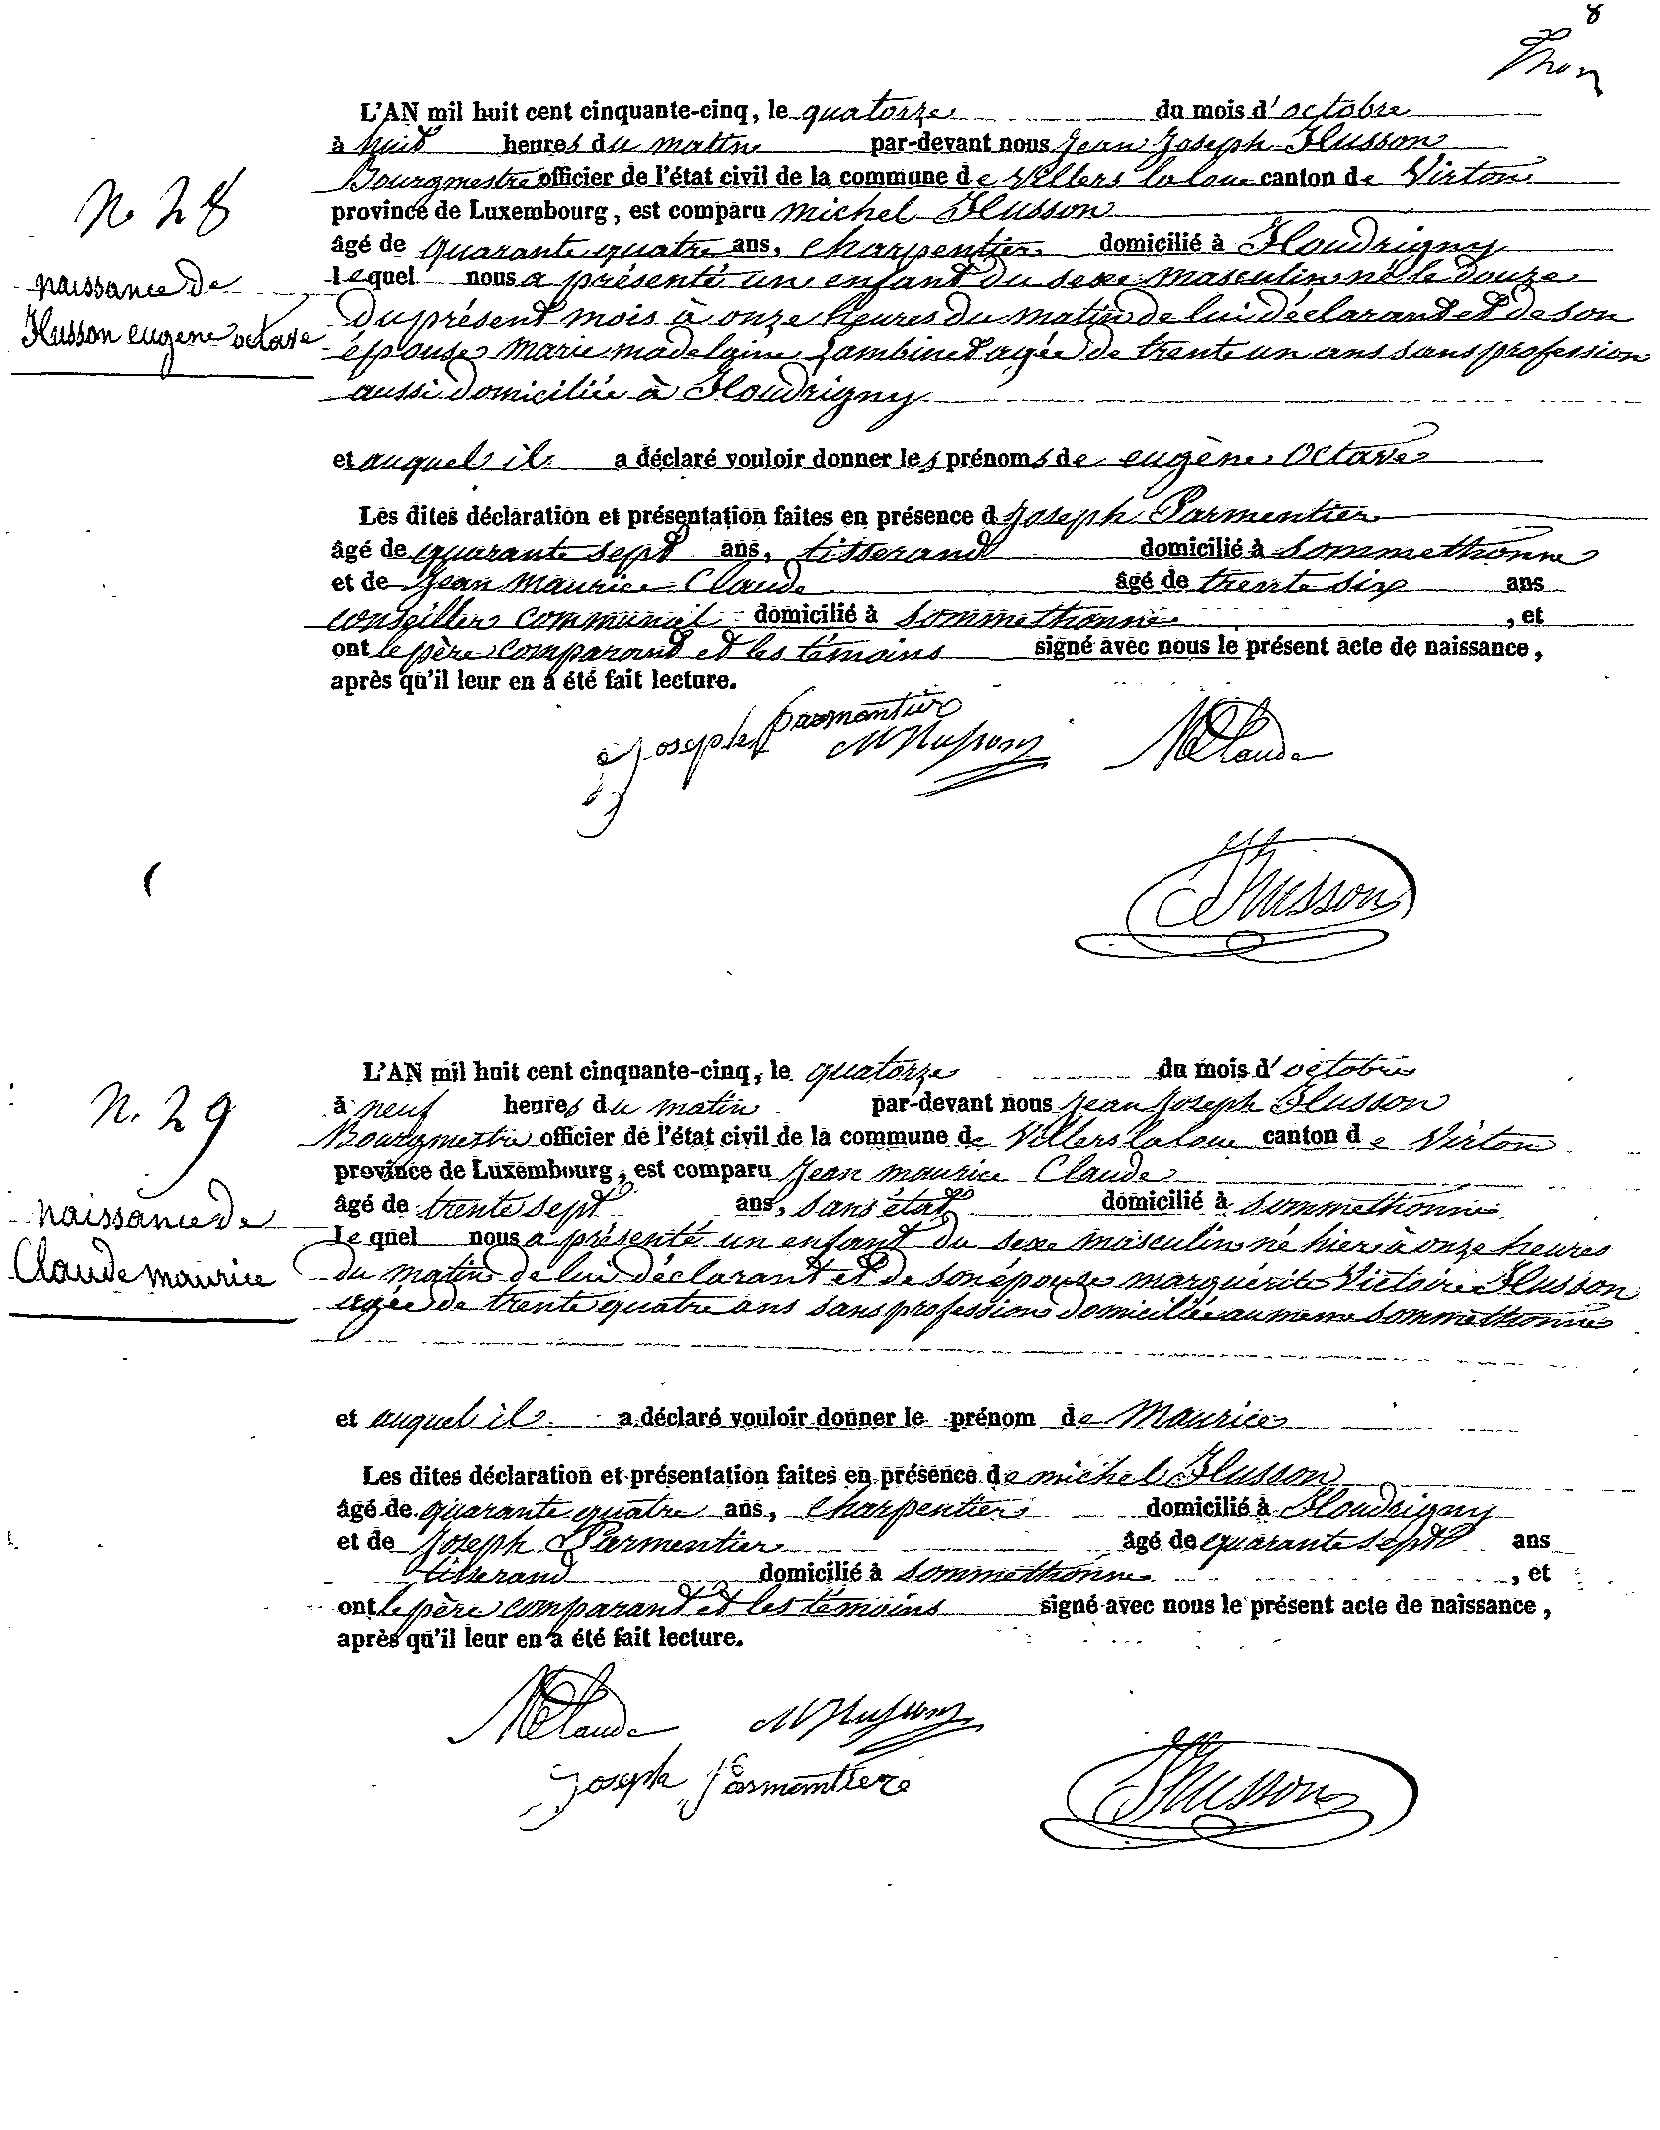 8
Thon
L'AN mil huit cent cinquante-cinq, le quatorze du mois d'octobre
à huit heures du matin par-devant nous Jean Joseph Husson
Bourgmestre officier de l'état civil de la commune de Villers la loue canton de Virton
province de Luxembourg, est comparu michel Husson
N. 28
âgé de quarante quatre ans, charpentier domicilié à Houdrigny
naissance de
Husson eugene octave
lequel nous a présenté un enfant du sexe masculin né le douze
du présent mois à onze heures du matin de lui déclarant et de son
épouse marie madelaine Jambinet agée de trente un ans sans profession
aussi domiciliée à Houdrigny
et auquel il a déclaré vouloir donner les prénoms de eugène octave
Les dites déclaration et présentation faites en présence d Joseph Parmentier
âgé de quarante sept ans, tisserand domicilié à sommethonne
et de Jean maurice Claude âgé de trente six ans
conseiller communal domicilié à sommethonne , et
ont le père comparant et les témoins signé avec nous le présent acte de naissance,
après qu'il leur en a été fait lecture.
Joseph parmentier M Husson M Claude
JJ Husson
L'AN mil huit cent cinquante-cinq, le quatorze du mois d'octobre
N. 29
à neuf heures du matin par-devant nous Jean Joseph Husson
Bourgmestre officier de l'état civil de la commune de Villers la loue canton de Virton
province de Luxembourg, est comparu Jean maurice Claude
âgé de trente sept ans, sans état domicilié à sommethonne
naissance de
Claude maurice
Lequel nous a présenté un enfant du sexe masculin né hier à onze heures
du matin de lui déclarant et de son épouse marguérite Victoire Husson
agée de trente quatre ans sans profession domiciliée au meme sommethonne
et auquel il a déclaré vouloir donner le prénom de Maurice
Les dites déclaration et présentation faites en présence de michel Husson
âgé de quarante quatre ans, charpentier domicilié à Houdrigny
et de Joseph Parmentier âgé de quarante sept ans
tisserand domicilié à sommethonne , et
ont le père comparant et les témoins signé avec nous le présent acte de naissance,
après qu'il leur en a été fait lecture.
M Claude M Husson
Joseph Parmentiere JJ Husson